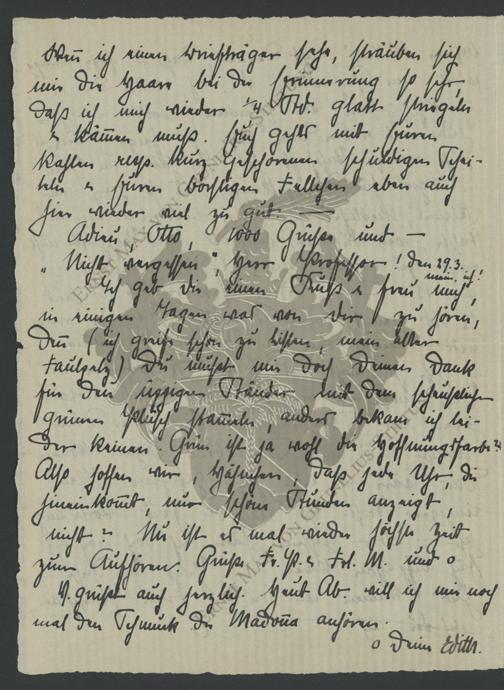 Wenn ich einen Briefträger sehe, sträuben sich
mir die Haare bei der Erinnerung so sehr,
daß ich mich wieder ¼ Std. glatt striegeln
u. kämmen muß. Euch gehts mit Euren
kahlen resp. kurz geschorenen schuldigen Schei-
teln u. Euren borstigen Fellchen eben auch
hier wieder viel zu gut. —
Adieu, Otto, 1000 Grüße und —
"Nicht vergessen", Herr Professor! Den 29.3.
mein ich!
Ich geb dir einen Kuß u. freu mich,
in einigen Tagen was von dir zu hören,
denn (ich greife schon zu Listen, mein alter
Faulpelz) Du mußt mir doch Deinen Dank
für den üppigen Ständer mit dem scheußlichen
grünen Plüsch stammeln, anders bekam ich lei-
der keinen. Grün ist ja wohl die Hoffnungsfarbe?
Also hoffen wir, daß jede Uhr, die
hineinkommt, nur schöne Stunden anzeigt,
nicht? Nu ist es mal wieder höchste Zeit
zum Aufhören. Grüße Fr. P. u. Frl. M. und o
V. grüßt auch herzlich. Heut Ab. will ich mir noch
mal den Schmuck der Madonna anhören.
o Deine Edith.